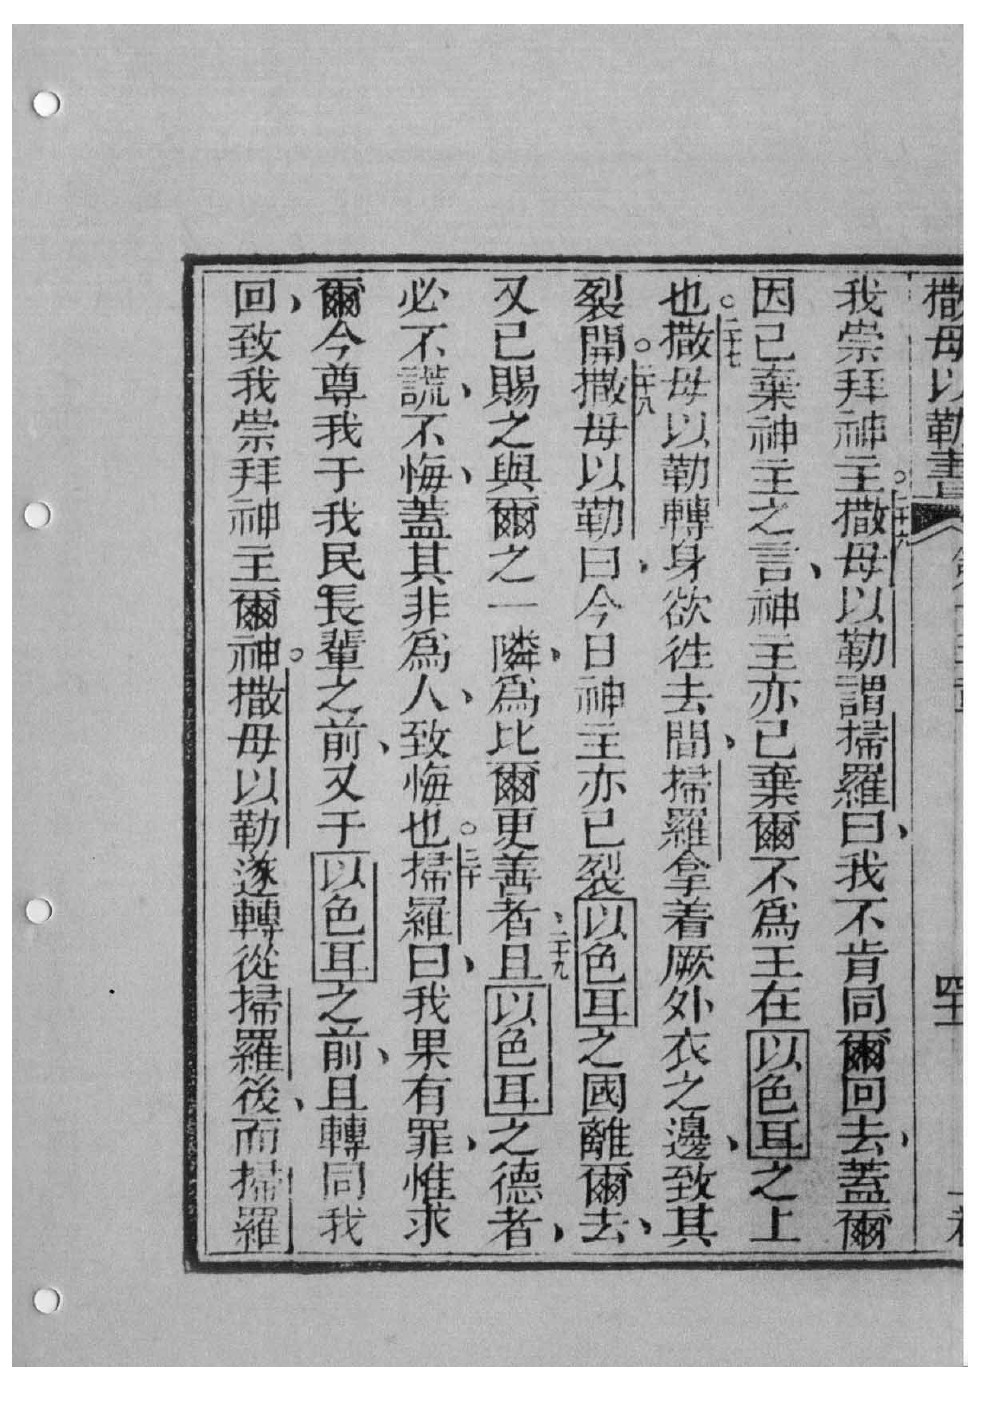 撒母以勒書
四
我崇拜神主。二十六撒母以勒謂掃羅曰、我不肯同爾回去、蓋爾
因已棄神主之言、神主亦已棄爾不爲王在以色耳之上
也。二十七撒母以勒轉身欲徃去間、掃羅拿着厥外衣之邊、致其
裂開。二十八撒母以勒曰、今日神主亦已裂以色耳之國離爾去、
又已賜之與爾之一隣、爲比爾更善者、二十九且以色耳之德者、
必不謊、不悔、蓋其非爲人、致悔也。三十掃羅曰、我果有罪、惟求
爾今尊我于我民長輩之前、又于以色耳之前、且轉同我
回、致我崇拜神主爾神。撒母以勒遂轉從掃羅後、而掃羅